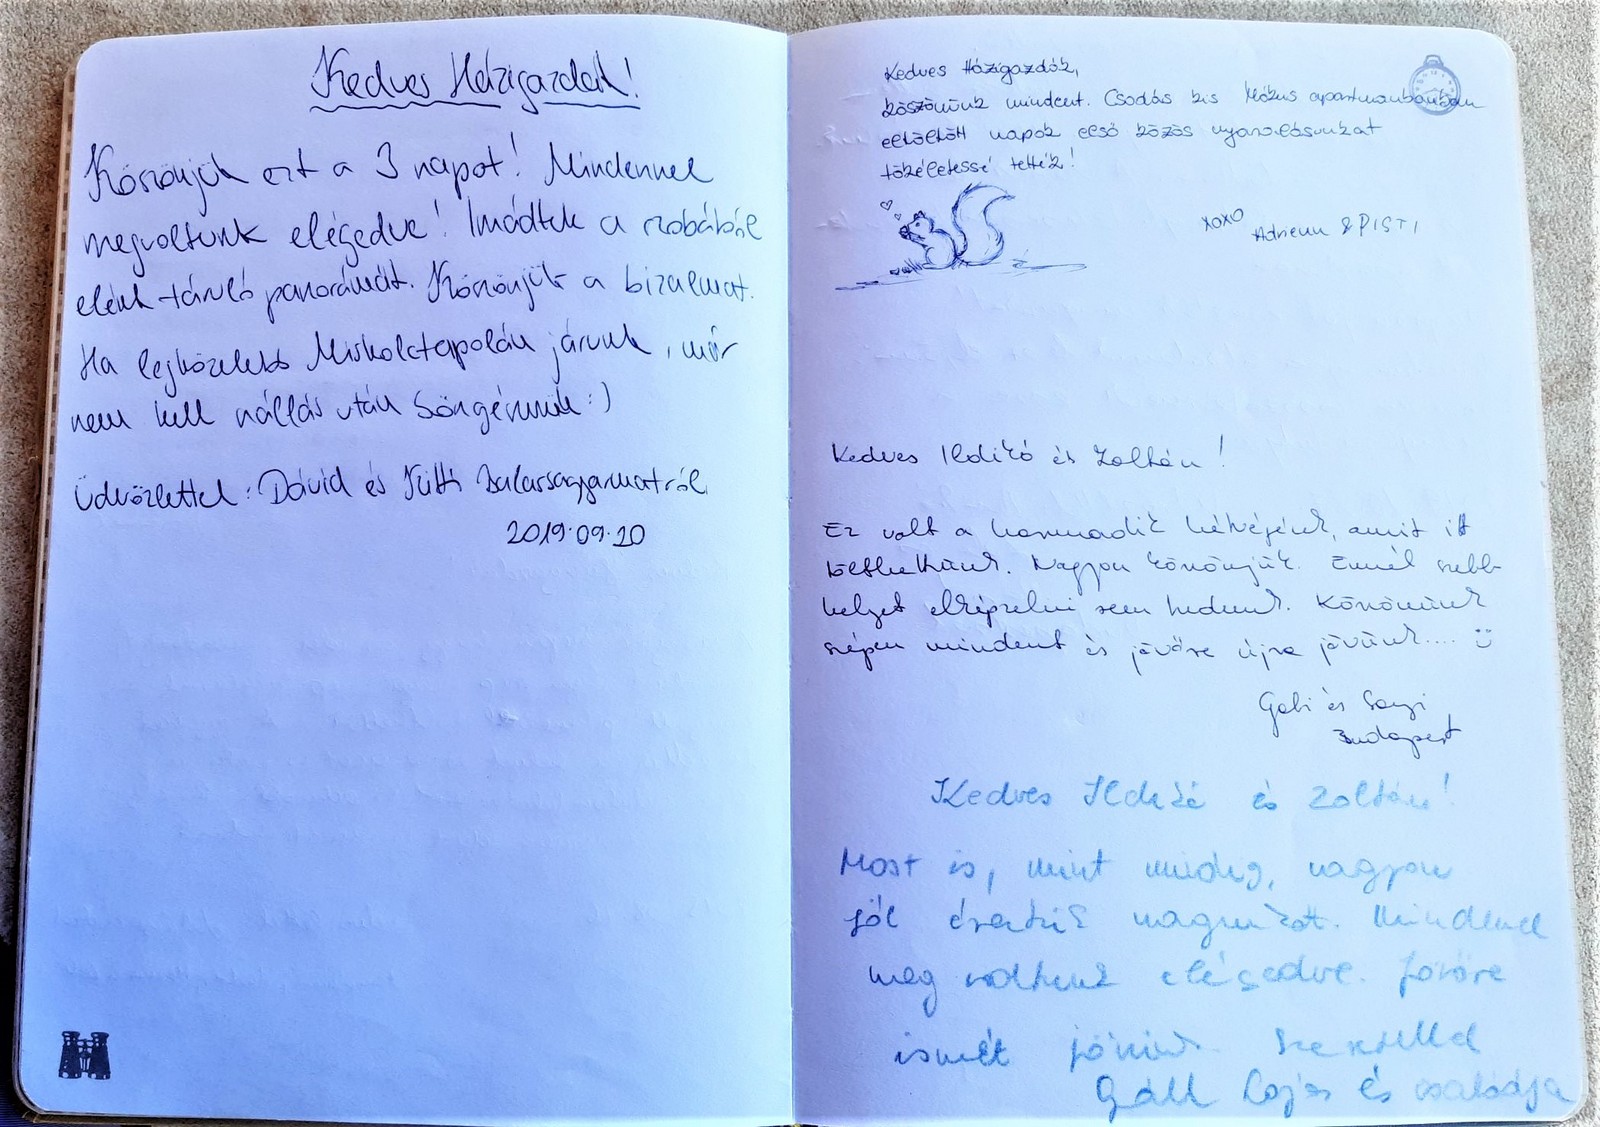 Kedves Házigazdák!
Köszönjük ezt a 3 napot! Mindennel
megvoltunk elégedve! Imádtuk a szobából
elénk táruló panorámát. Köszönjük a bizalmat.
Ha legközelebb Miskolctapolcán járunk, már
nem kell szállás után böngésznünk :)
Üdvözlettel: Dávid és Balassagyarmatról
2019.09.20
Kedves Házigazdák,
köszönünk mindent. Csodás kis Mókus apartmanban
eltöltött napok első közös nyaralásunkat
tökéletessé tették!
xoxo Adrienn & PISTI
Kedves Ildikó és Zoltán!
Ez volt a harmadik hétvégénk, amit itt
tölthettünk. Nagyon köszönjük. Ennél szebb
helyet elképzelni sem tudunk. Köszönünk
szépen mindent és jövőre újra jövünk....
Gabi és Sanyi
Budapest
Kedves Ildikó és Zoltán!
Most is, mint mindig, nagyon
jól éreztük magunkat. Mindennel
meg voltunk elégedve. Jövőre
ismét jövünk. Szeretettel
Gáll Lajos és családja